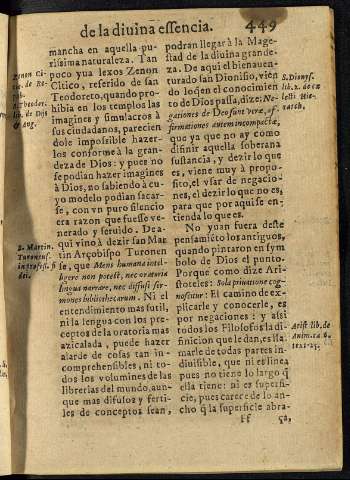 de la diuina essencia. 449
mancha en aquella pu-
rissima naturaleza. Tan
poco yua lexos Zenon
Citico, referido de san
Teodoreto, quando pro-
hibia en los templos las
imagines y simulacros à
sus ciudadanos, parecien
dole impossible hazer-
los conforme à la gran-
deza de Dios: y pues no
se podian hazer imagines
à Dios, no sabiendo à cu-
yo modelo podian sacar-
se, con vn puro silencio
era razon que fuesse ve-
nerado y seruido. De a-
qui vino à dezir san Mar
tin Arçobispo Turonen
se, que Mens humana intel-
lingua narrare, nec diffusi ser-
mones bibliothecarum. Ni el
entendimiento mas sutil,
ni la lengua con los pre-
ceptos de la oratoria mas
azicalada, puede hazer
alarde de cosas tan in-
comprehensibles, ni to-
dos los volumines de las
librerias del mundo, aun-
que mas difusos y ferti-
les de conceptos sean,
Zenon Ci
tic. de Re
pub.
Teodor.
lib. de Dijs
& Ang.
S. Martin.
Turonens.
in profess. fi
dei.
podran llegar à la Mage-
stad de la diuina grande-
za. De aqui el bienauen-
turado san Dionisio, vien
do losen el conocimien
to de Dios passa, dize; Ne-
gationes de Deo sunt veræ, af-
firmationes autem incompactæ,
que ya que no ay como
difinir aquella soberana
sustancia, y dezir lo que
es, viene muy à propo-
sito, el vsar de negacio-
nes, el dezir lo que no es,
para que por aqui se en-
tienda lo que es.
No yuan fuera deste
pensamiēto los antiguos,
quando pintaron en sym
bolo de Dios el punto.
Porque como dize Ari-
stoteles: Sola priuatione cog-
noscitur: El camino de ex-
plicarle y conocerle, es
por negaciones: y assi
todos los Filosofos la di-
finicion que le dan, es lla-
marle de todas partes in-
diuisible, que ni es linea
pues no tiene lo largo q̃
ella tiene: ni es superfi-
cie, pues carece de lo an-
cho q̃ la superficie abra-
Ff
S. Dionys.
lib. 2. de cæ
lesti Hie-
rarch.
Arist. lib. de
Anima. c. 6.